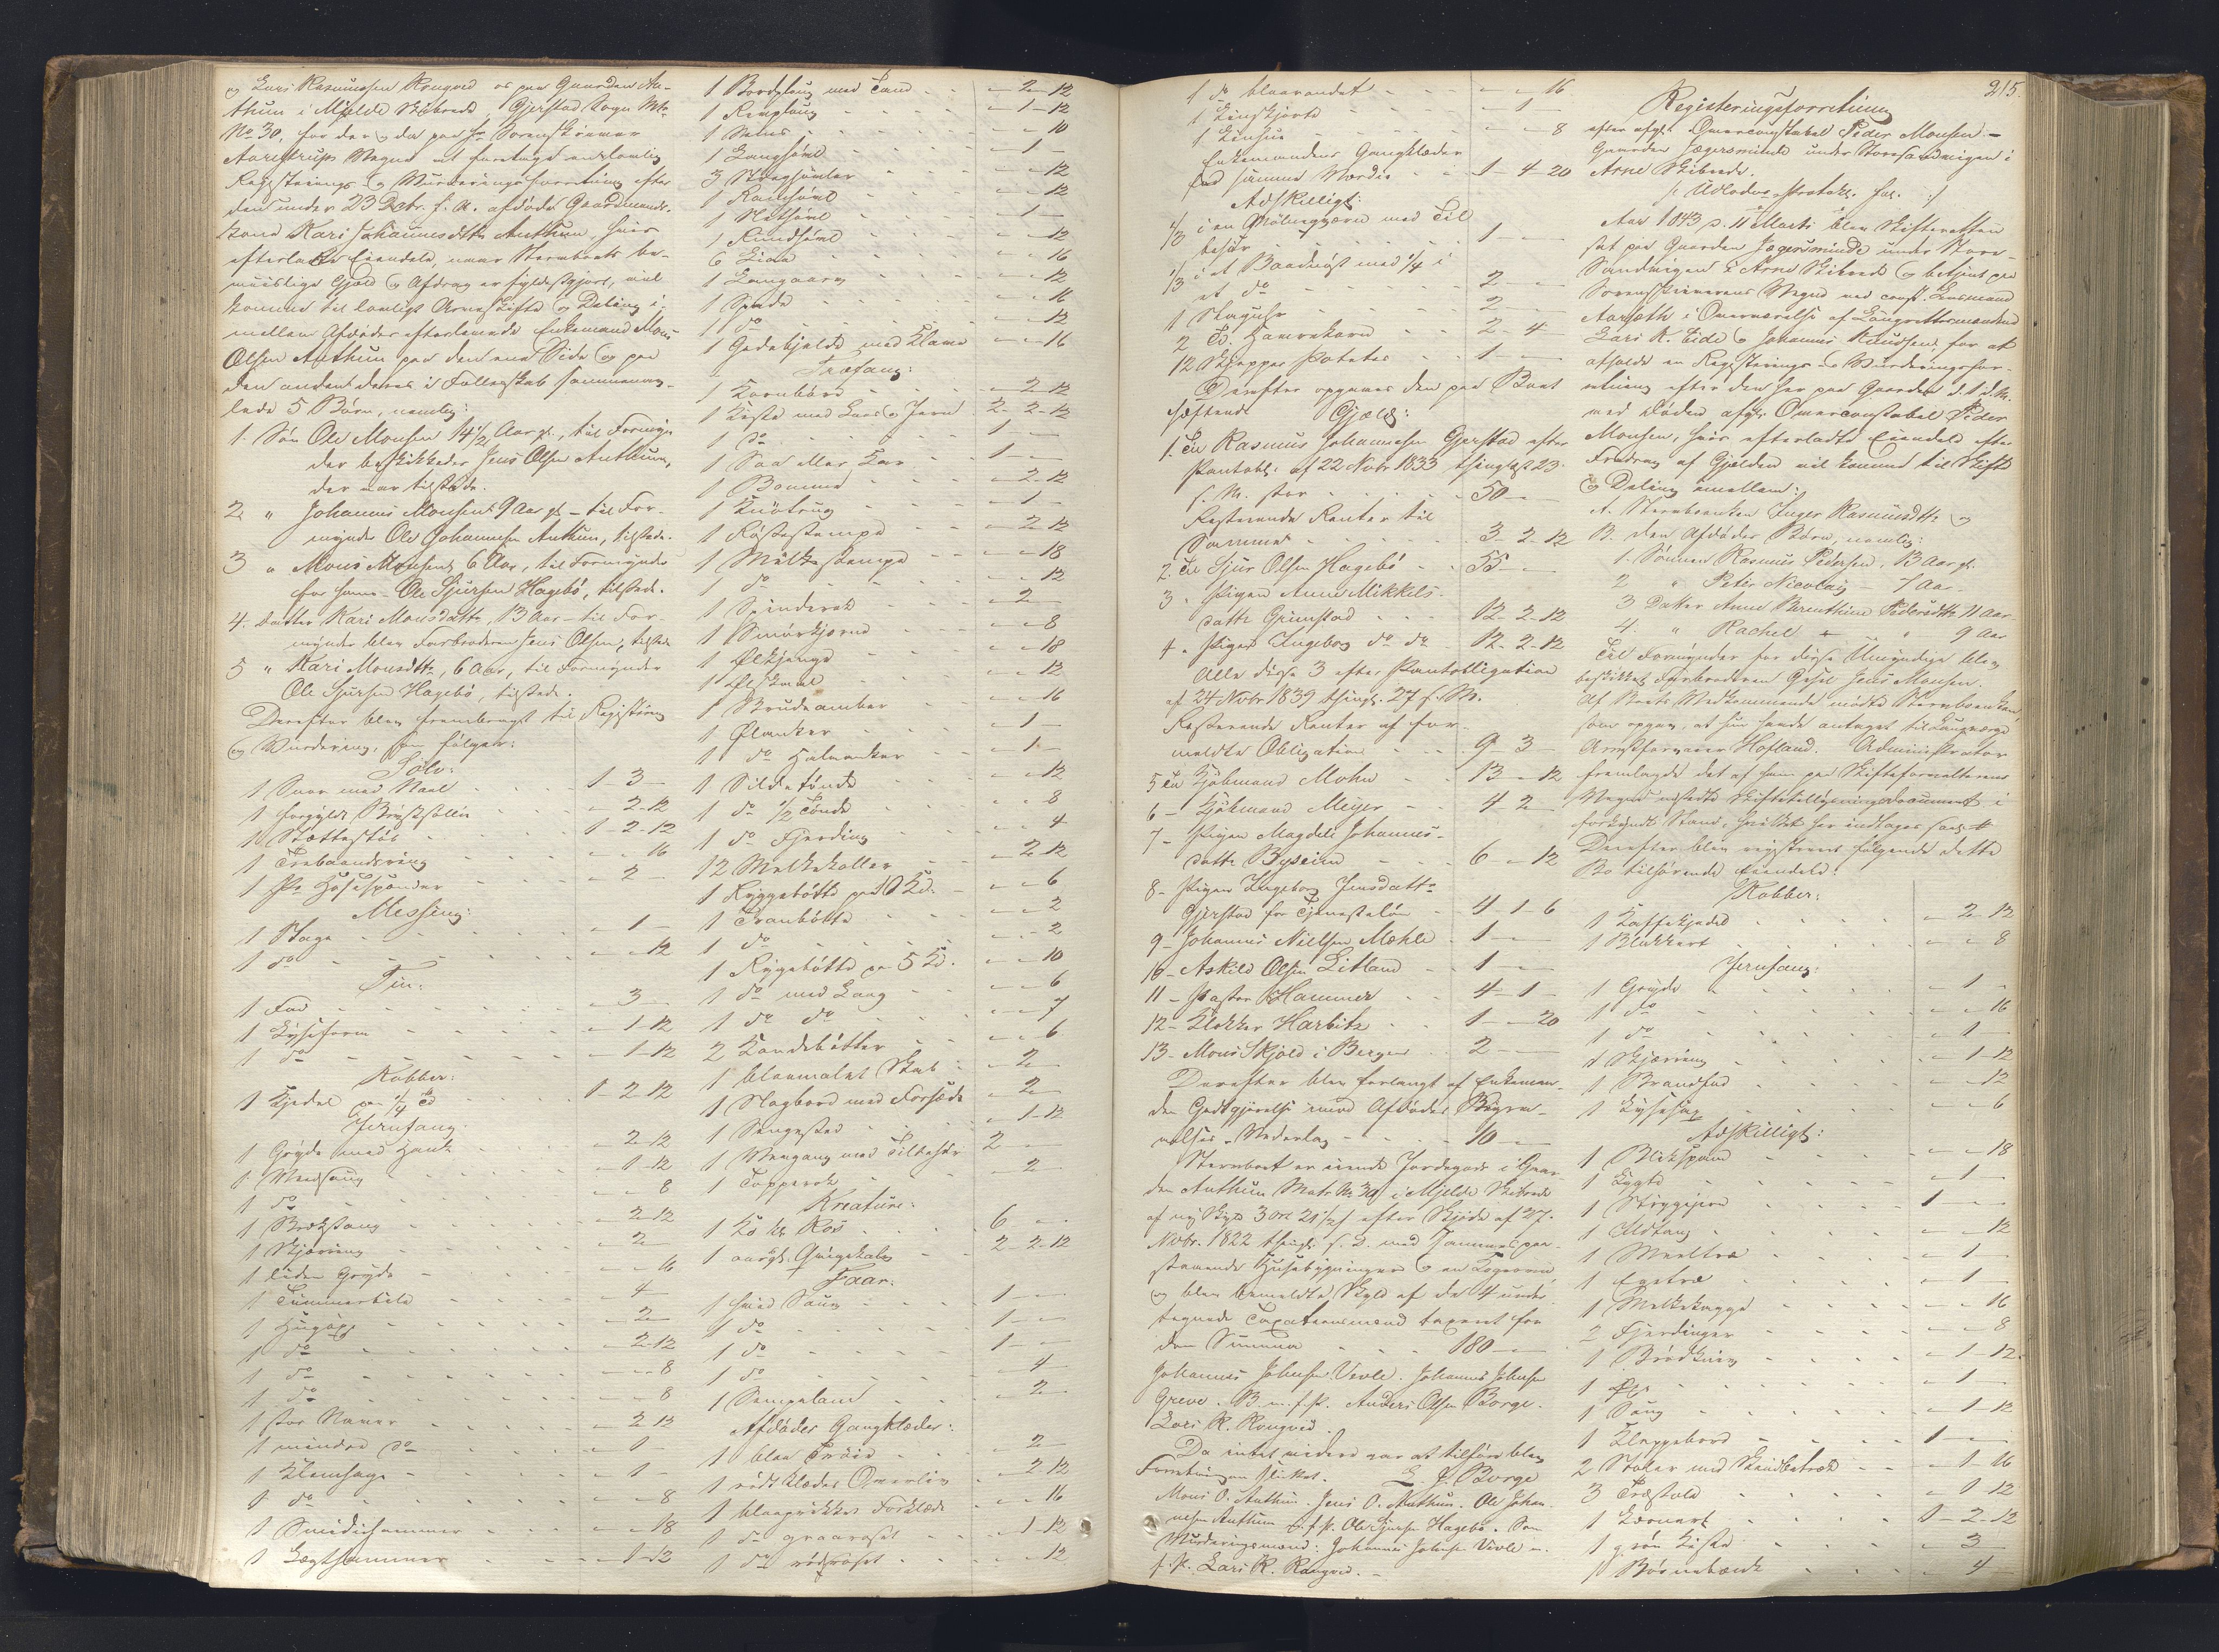 og Lars Rasmussen Rongved os paa Gaarden An-
thun i Mjelde Skibrede Gjerstad Sogn Mtr.
No 30, for der og da paa Hr Sorenskriver
Aarestrups Vegne at foretage endelig
Registrerings og Vurderingsforretning efter
den under 23 Debr. f. A. afdøde Gaardmands-
kone Kari Johannesdttr Anthun, hvis
efterladte Eiendele, naar Stervboets be-
viislige Gjæld og Afdrag er fyldestgjort, vil
komme til lovligt Arveskifte og Deling i-
mellem Afdødes efterlevende Enkemand Mons
Olsen Anthun paa den ene Side og paa
den anden deres i Fællesskab sammenav-
lede 5 Børn, nemlig:
1. Søn Ole Monsen 14 1/2 Aar gl., til Formyn
der beskikkedes Jens Olsen Anthun,
der var tilstede.
2 " Johannes Monsen 9 Aar gl. - til For-
mynder Ole Johannesen Anthun, tilstede.
3 " Mons Monsen 6 Aar, til Formynder
for ham - Ole Sjursen Hagebø, tilstede.
4. Datter Kari Monsdattr, 13 Aar - til For-
mynder blev Farbroderen Jens Olsen, tilstede
5 " Kari Monsdttr, 6 Aar, til Formynder
Ole Sjursen Hagebø, tilstede.
Derefter blev frembragt til Registrering
og Vurdering, som følger:
Sølv:
1 Snor med Naal 1-3-
1 forgyldt Brystsølie - 2-12
10 Støttestøb 1-2-12
1 Trebaandsring - - 16
1 Pr. Hosespænder - 2 -
Messing:
1 Stage - 1 -
1 do - - 12
Tin:
1 Fad - 3 -
1 Lyseform - 1-12
1 do - 1-12
Kobber:
1 Kjedel paa 1/4 Td 1-2-12
Jernfang:
1 Gryde med Hank - 2-12
1 Meedsaug - 1-12
1 do - - 8
1 Brækstang - 2-12
1 Skjæring - 2 -
1 liden Gryde - - 16
1 Tømmerbile - 4 -
1 Hugøxe - 2 -
1 do - 2-12
1 do - - 8
1 do - - 8
1 stor Naver - 2-12
1 mindre do - 1 -
1 Klemsage - 1 -
1 do - - 8
1 Smedehammer - - 18
1 Lægthammer - 1-12
1 Bordploug med Tand - 2-12
1 Remploug - 1-12
1 Sims - - 10
1 Langhøvel - 1 -
3 Strøghøvler - - 12
1 Ramhøvel - - 12
1 Nothøvel - 1 -
1 Rundhøvel - - 12
6 Liaa - - 16
1 Langaarv - - 12
1 Spade - - 16
1 do - - 12
1 Gedebjelde med Klave - - 16
Træfang:
1 Kornbøre - 2-12
1 Kiste med Laas og Jern 2-2-12
1 do 1 - -
1 Saa eller Kar 1 - -
1 Bomme - 2-12
1 Knøtrug - 1 -
1 Røstestampe - 2-12
1 Mæltestampe - - 18
1 do - - 12
1 Spinderok - 2 -
1 Smørkjerne - - 8
1 Ølkjenge - - 18
1 Ølskaal - - 12
1 Brudeamber - - 16
1 Ølanker - 1 -
1 do Halvanker - 1 -
1 Sildetønde - - 12
1 do 1/2 Tønde - - 8
1 do Fjerding - - 4
12 Melkekoller - 2-12
1 Ryggebøtte paa 8 Kd. - - 6
1 Tranbøtte - - 2
1 do - - 2
1 Rygebøtte paa 5 Kd. - - 10
1 do med Laag - - 6
1 do do - - 7
2 Vandbøtter - - 6
1 blaamalet Skab - 2 -
1 Slagbord med Forsæde - 2 -
1 Sengested - 1-12
1 Vævgang med Tilbehør 2 - -
1 Topperok - 2 -
Kreature:
1 Ko kl. Ros 6 - -
1 aargl. Qvigekalv 2-2-12
Faar:
1 hvid Saug 1 - -
1 do 1 - -
1 do 1 - -
1 do - 4 -
1 Sengeland - 2 -
Afdødes Gangklæder:
1 blaa Trøie - 2 -
1 rødt Klædes Overliv - 2-12
1 blaaprikket Forklæde - - 16
1 do graaroset - 1-12
1 do rødroset - - 12
1 do blaarandet - - 16
1 Linskjorte - 1 -
1 Linhue - - 8
Enkemandens Gangklæder
til samme Værdie 1-4-20
Adskilligt:
1/3 i en Møllegværn med Til
behør 1 - -
1/3 i et Baadnøst med 1/4 i
et do 2 - -
1 Slaguhr 2 - -
2 Td. Havrekorn 2-4-
12 Skjepper Poteter 1 - -
Derefter opgaves den paa Boet
hæftende Gjæld:
1. Til Rasmus Johannesen Gjerstad efter
Pantobl. af 22 Novr 1833 thinglæst 23.
s. M. stor 50 - -
Resterende Renter til
Sammes 3-2-12
2. Til Sjur Olsen Hagebø 55 - -
3. Pigen Anne Mikkels-
dattr Grimstad 12-2-12
4. Pigen Ingeborg do do 12-2-12
Alle disse 3 efter Pantobligation
af 24 Novbr 1839 thingl. 27 s. M.
Resterende Renter af for
meldte Obligation 9-3-
5 Til Kjøbmand Mohn 13- -12
6 - Kjøbmand Meyer 4-2-
7 - Pigen Magdeli Johannes-
dattr Byseim 6- -12
8 - Pigen Ingeborg Jensdattr
Gjerstad for Tjenesteløn 4-1-6
9 - Johannes Nielsen Mæhle 1 - -
10 - Askild Olsen Litland 1 - -
11 - Pastor Hammer 4-1-
12 - Klokker Harbitz 1- -20
13 - Mons Skjold i Bergen 2 - -
Derefter blev forlangt af Enkeman-
den Godtgjørelse imod Afdødes Begra-
velses-Vederlag 10 - -
Stervboet er eiende Jordegods i Gaar
den Anthun Matr. No 30 i Mjelde Skibrede
af ny Skyld 3 Ort 21 1/2 s efter Skjøde af 27.
Novbr. 1822 thingl. s. D. med Sammes paa-
staaende Huusebygninger og en Kværn
og blev bemeldte Skyld af de 4 under
tegnede Taxationsmænd taxeret for
den Summa 180 - -
Johannes Johnsen Vevle. Johannes Johnsen
Greve. B. m. f. P. Anders Olsen Borge.
Lars R. Rongved.
Da intet videre var at tilføre blev
Forretningen sluttet. L. J. Borge
Mons O. Anthun. Jens O. Anthun. Ole Johan-
nesen Anthun m. f. P. Ole Sjursen Hagebø. Som
Vurderingsmænd: Johannes Johnsen Vevle m.
f. P. Lars R. Rongved. -
215
Registeringsforretning
efter afgl. Overconstabel Peder Monsen. -
Gaarden Jægersminde under Storesandvigen i
Arne Skibrede.
/: Udlodn. Protokl. Fol. :/
Aar 1843 d. 11 Marts blev Skifteretten
sat paa Gaarden Jægersminde under Store-
Sandvigen i Arne Skibrede og betjent paa
Sorenskriverens Vegne ved const. Lensmand
Aarseth i Overværelse af Laugrettesmændene
Lars K. Eide og Johannes Knudsen for at
afholde en Registerings- og Vurderingsfor-
retning efter den her paa Gaarden d. 1 d. M.
ved Døden afgl. Overconstabel Peder
Monsen, hvis efterladte Eiendele efter
Fradrag af Gjælden vil komme til Skifte
og Deling imellem:
A. Stervboenken Inger Rasmusdttr og
B. den Afdødes Børn, nemlig:
1. Sønnen Rasmus Pedersen, 13 Aar gl.
2 " Peter Nicolay - 7 Aar.
3 Datter Anne Berenthine Pedersdttr 11 Aar
4. " Rachel " 9 Aar
Til Formynder for disse Umyndige blev
beskikket Farbroderen Gifte Jens Monsen.
Af Boets Vedkommende mødte Stervboenken,
som opgav, at hun havde antaget til Laugværge
Arrestforvarer Hofland. Administrator
fremlagde det af ham paa Skifteforvalterens
Vegne udstedte Skifteetillysningsdocument i
forkyndt Stand, hvilket her indtages saal.
Derefter blev registreret følgende dette
Bo tilhørende Eiendele:
Kobber:
1 Kaffekjedel - 2-12
1 Blækkert - - 8
Jernfang:
1 Gryde - 1 -
1 do - - 16
1 do - 1 -
1 Skjæring - 1-12
1 Brandjod - - 12
1 Lysesax - - 6
Adskilligt:
1 Blikspand - - 18
1 Lygte - 1 -
1 Strygejern 1 - -
1 Ildtang - - 12
1 Meeltræ - 1 -
1 Egetræ - 1 -
1 Melkebøtte - - 16
2 Fjerdinger - - 8
1 Brødkniv - 1-12
1 Øxe - 1 -
1 Saug - 1-12
1 Klappebord 1 - -
2 Stoler med Skindbetræk - 1-16
3 Træstole - 1-12
1 Lærred 1-2-12
1 grøn Kiste - 3 -
1 Børnebænk - 4 -